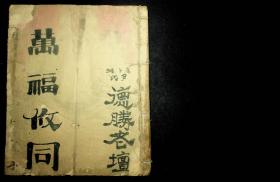 萬福攸同
德勝老壇